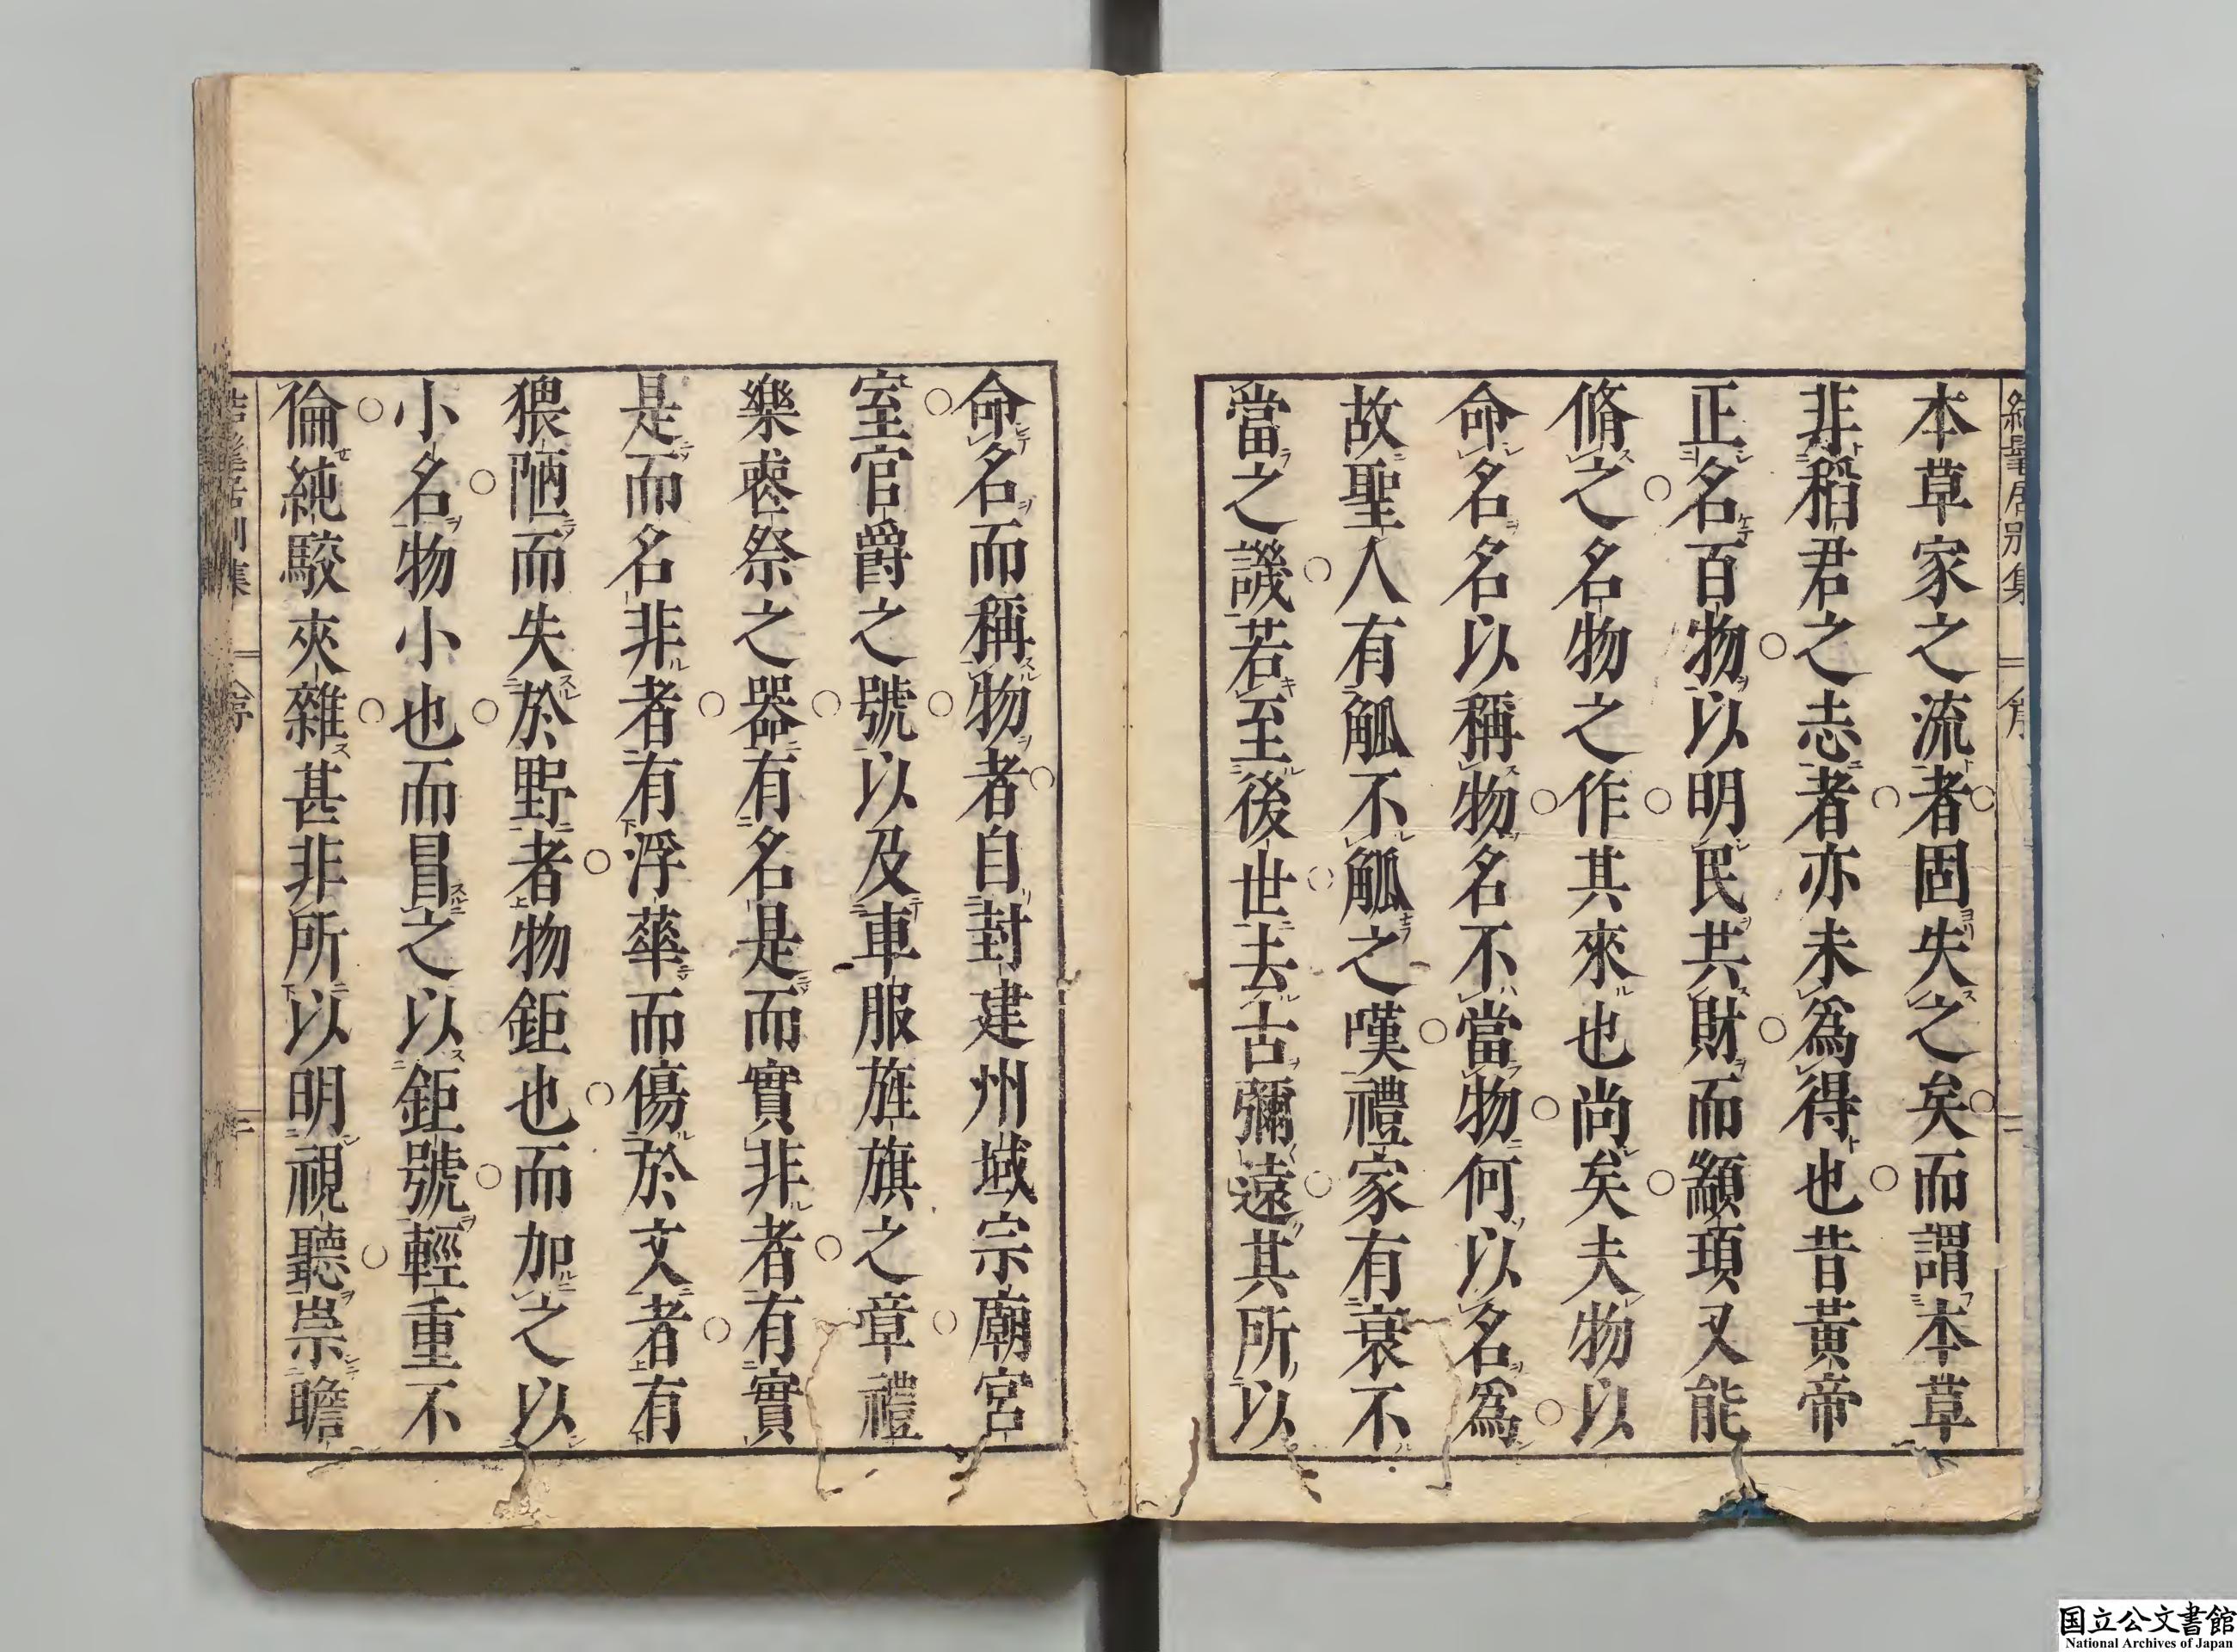 本草家之流者固失之矣而謂本草
非稻君之志者亦未爲得也昔黃帝
正名百物以明民共財而顓頊又能
脩之名物之作其來也尚矣夫物以
命名名以稱物名不當物何以名爲
故聖人有觚不觚之嘆禮家有衰不
當之譏若至後世去古彌遠其所以
命名而稱物者自封建州域宗廟宮
室官爵之號以及車服旌旗之章禮
樂喪祭之器有名是而實非者有實
是而名非者有浮華而傷於文者有
猥陋而失於野者物鉅也而加之以
小名物小也而冒之以鉅號輕重不
倫純駁夾雜甚非所以明視聽崇瞻
居別集
序
国立公文書館
National Archives of Japan